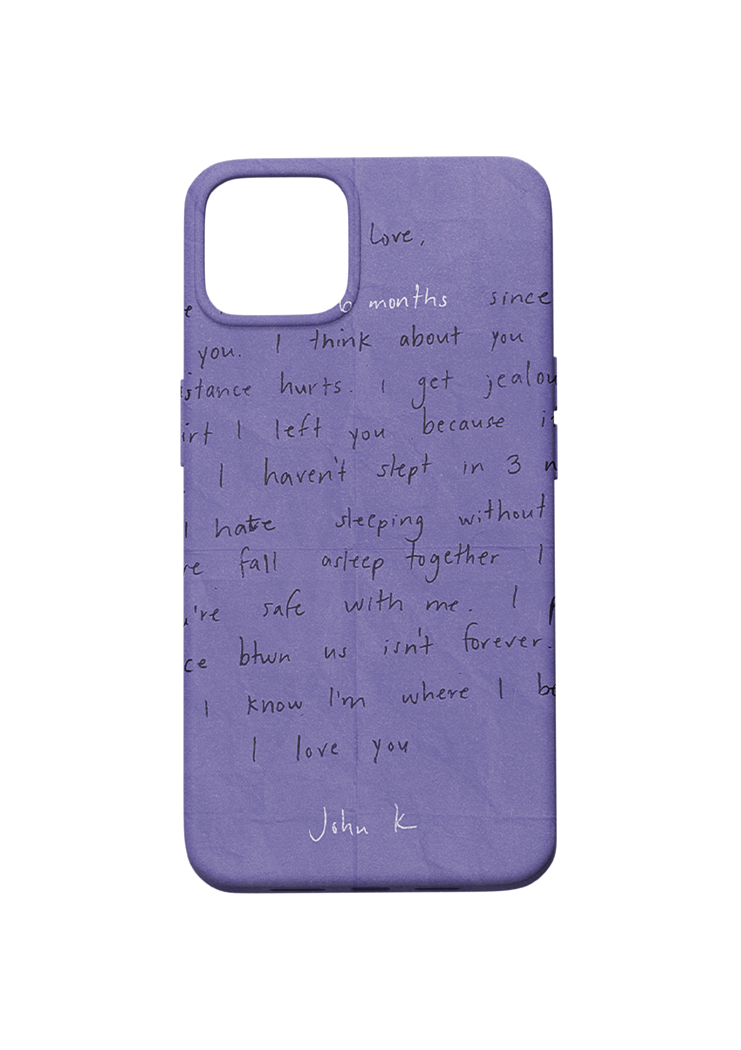 Love,
6 months since
you. I think about you
istance hurts. I get jealou
irt I left you because i
I haven't slept in 3 n
I hate sleeping without
re fall asleep together I
u're safe with me. I
ce btwn us isn't forever.
I know I'm where I be
I love you
John K